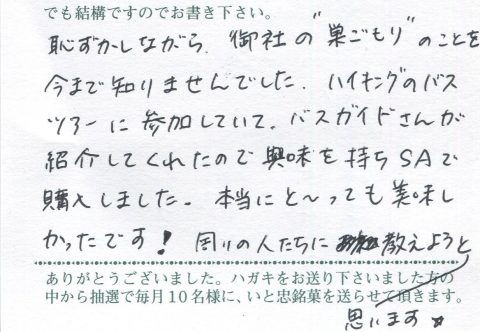 でも結構ですのでお書き下さい。
恥ずかしながら、御社の"巣ごもり"のことを
今まで知りませんでした。ハイキングのバス
ツアーに参加していて、バスガイドさんが
紹介してくれたので興味を持ちSAで
購入しました。本当にと〜っても美味し
かったです!周りの人たちに教えようと
思います☆
ありがとうございました。ハガキをお送り下さいました方の
中から抽選で毎月10名様に、いと忠銘菓を送らせて頂きます。